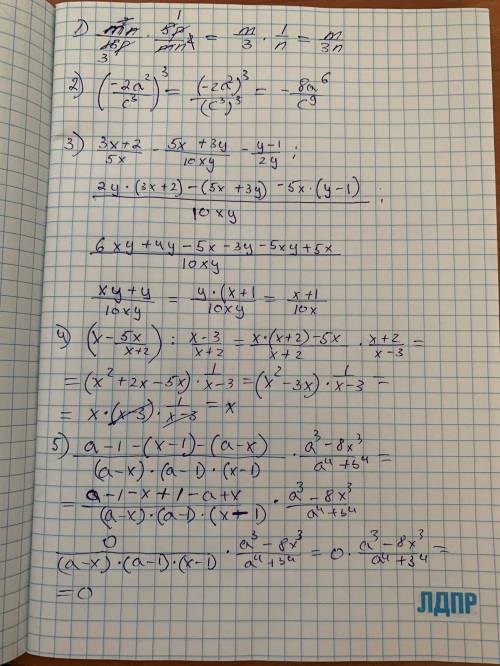 1) m²n/15p · 5p/mn² = m/3 · 1/n = m/3n
2) (-2a²/c³)³ = (-2a²)³/(c³)³ = -8a⁶/c⁹
3) 3x+2/5x - 5x+3y/10xy - y-1/2y ;
2y·(3x+2)-(5x+3y)-5x·(y-1)/10xy ;
6xy+4y-5x-3y-5xy+5x/10xy
xy+y/10xy = y·(x+1/10xy = x+1/10x
4) (x-5x/x+2) : x-3/x+2 = x·(x+2)-5x/x+2 · x+2/x-3 =
= (x²+2x-5x)·1/x-3 = (x²-3x)·1/x-3 =
= x·(x-3)·1/x-3 = x
5) a-1-(x-1)-(a-x)/(a-x)·(a-1)·(x-1) · a³-8x³/a⁴+3⁴ =
= a-1-x+1-a+x/(a-x)·(a-1)·(x-1) · a³-8x³/a⁴+3⁴
0/(a-x)·(a-1)·(x-1) · a³-8x³/a⁴+3⁴ = 0·a³-8x³/a⁴+3⁴ =
=0
ЛДПР